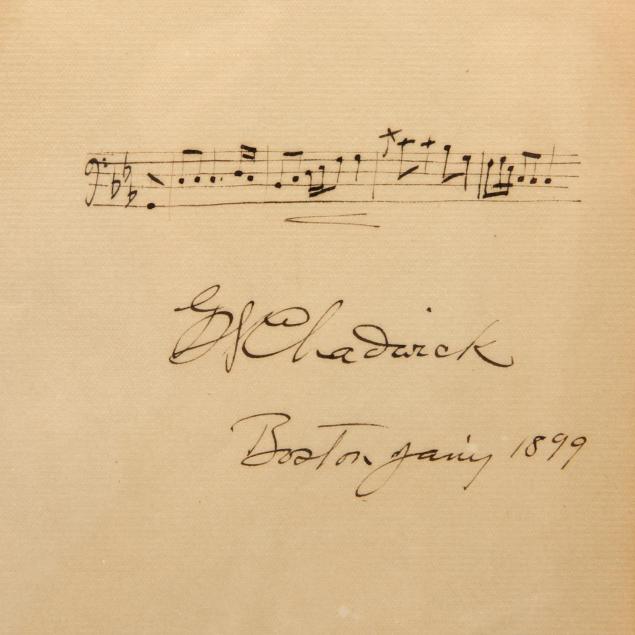 GW Chadwick
Boston Jan'y 1899